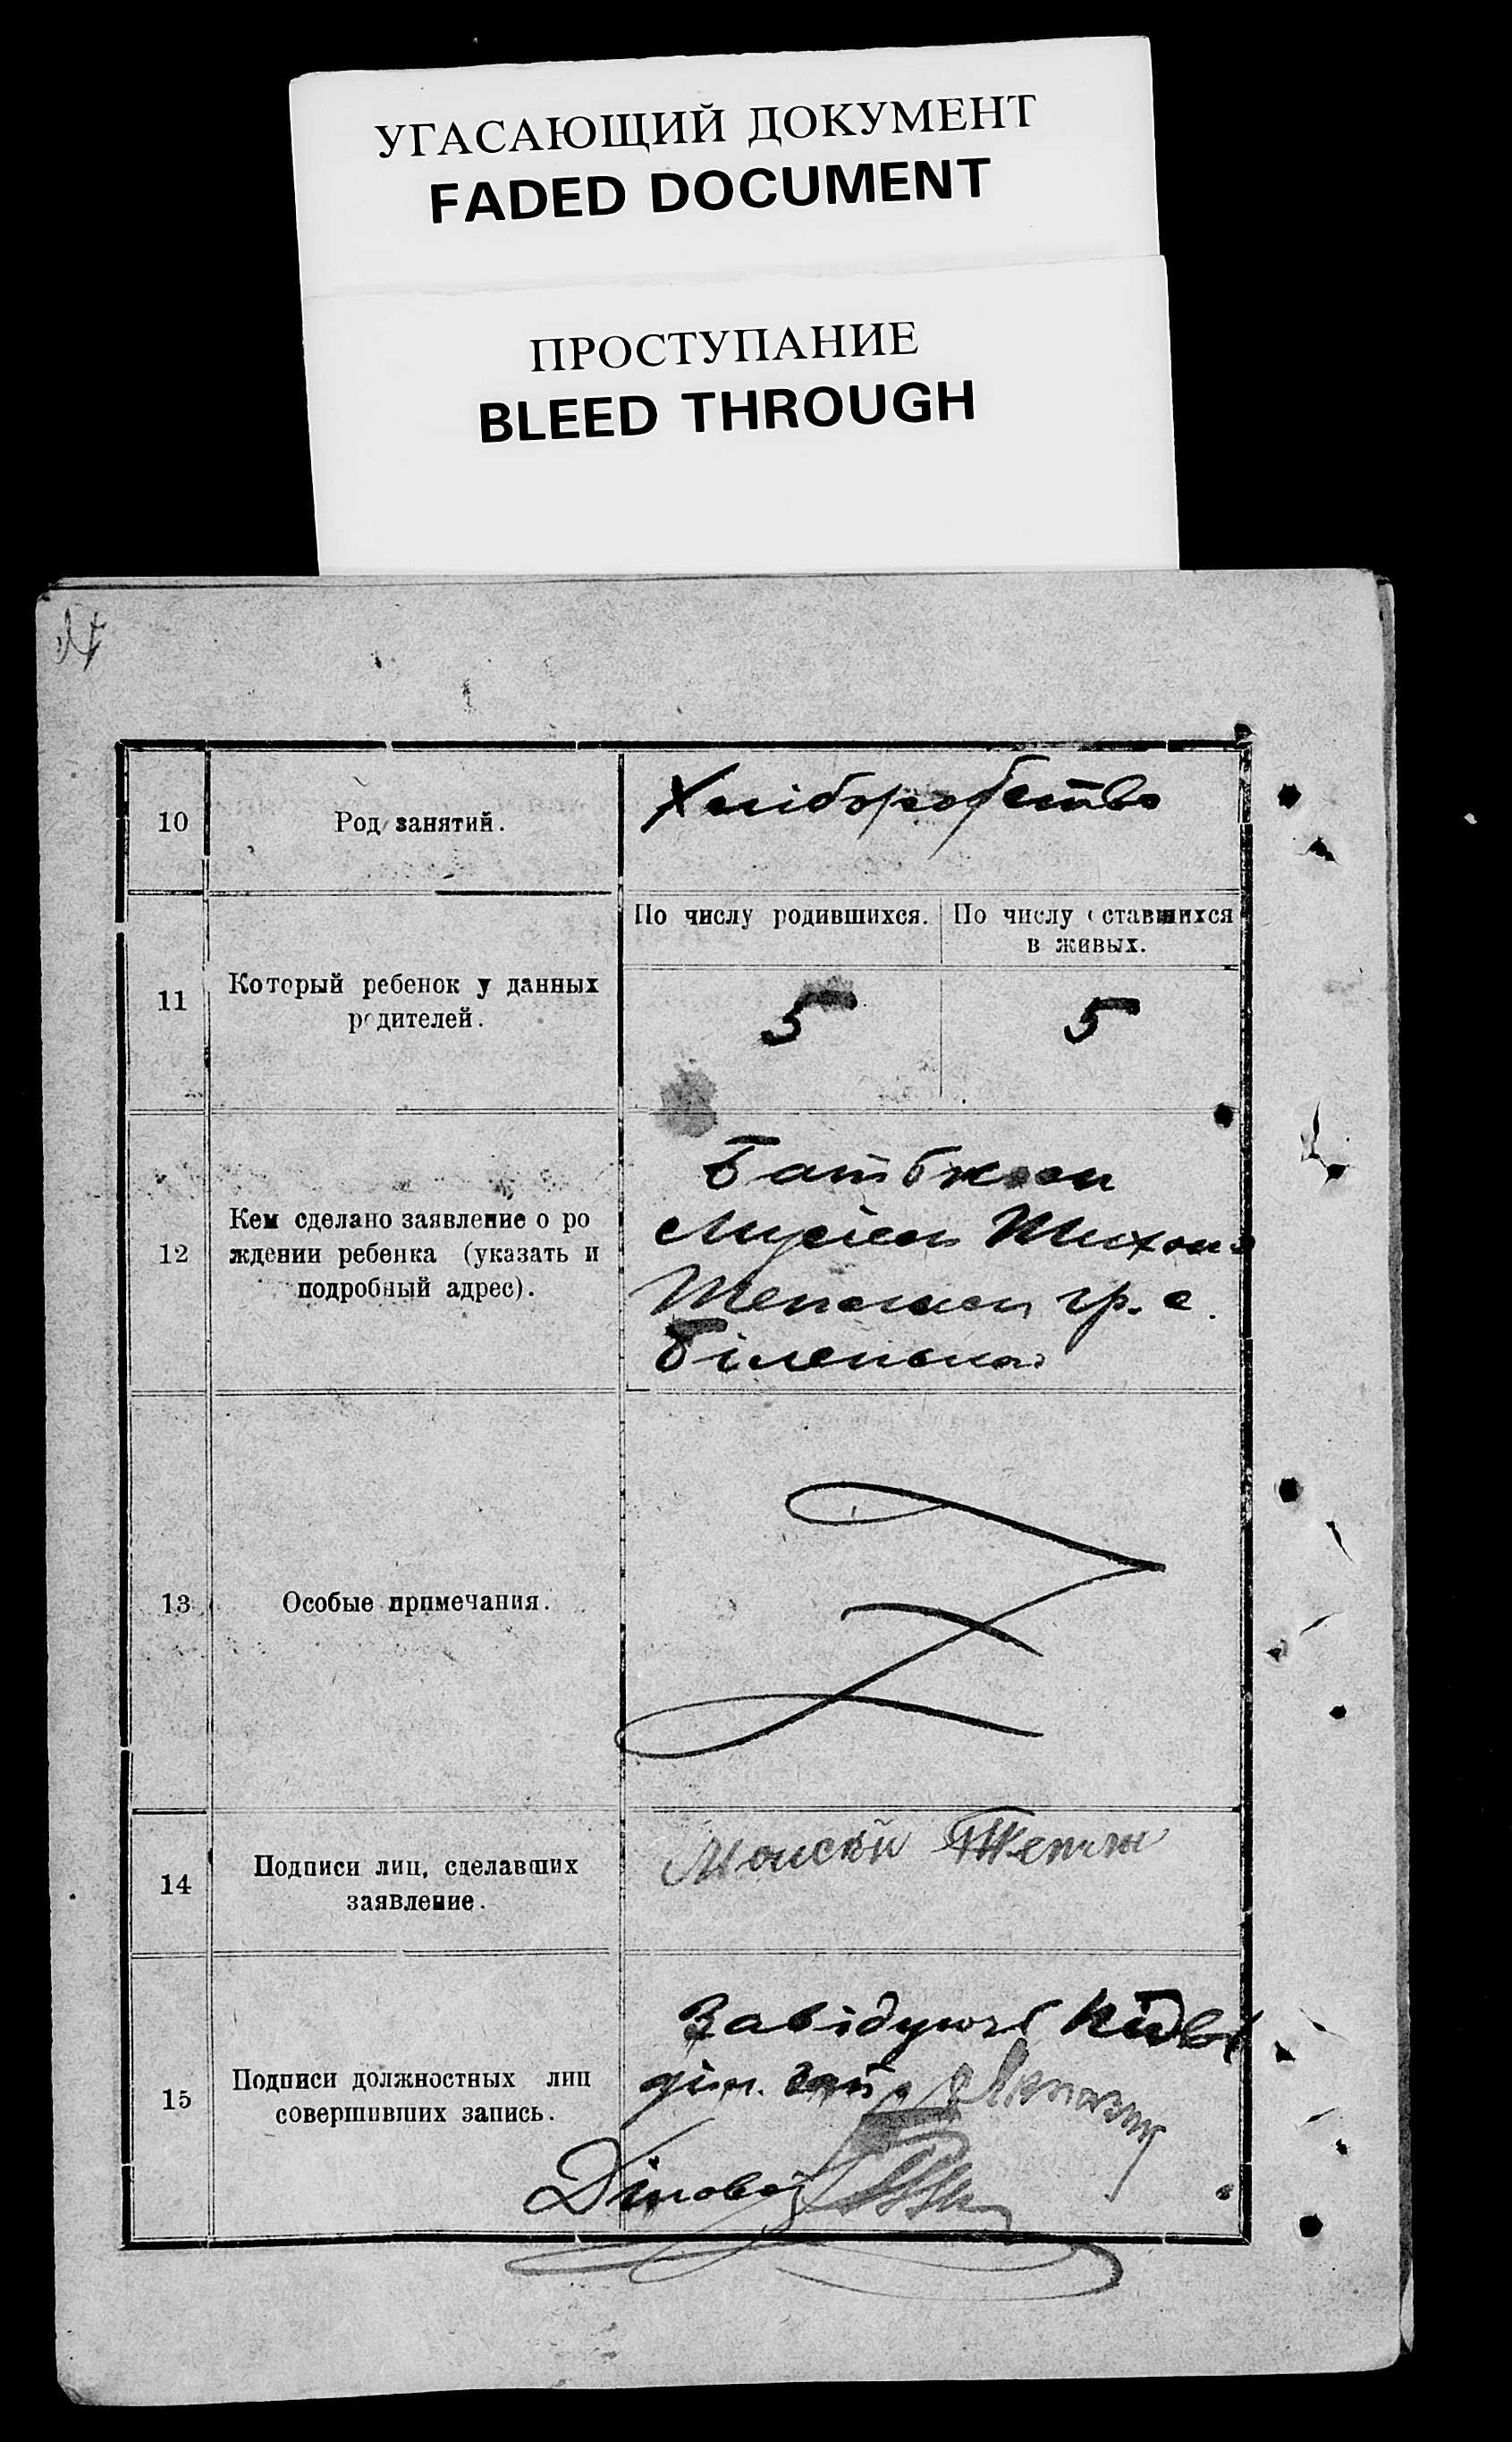 УГАСАЮЩИЙ ДОКУМЕНТ
FADED DOCUMENT
ПРОСТУПАНИЕ
BLEED THROUGH
10
Род занятий.
Хліборобство
11
Который ребенок у данных
родителей.
По числу родившихся.
По числу оставшихся
в живых.
5
5
12
Кем сделано заявление о ро
ждении ребенка (указать и
подробный адрес).
Батьком
гр. с.
Біленька
13
Особые примечания.
14
Подписи лиц, сделавших
заявление.
15
Подписи должностных лиц
совершивших запись.
Завідуюч
Діловод